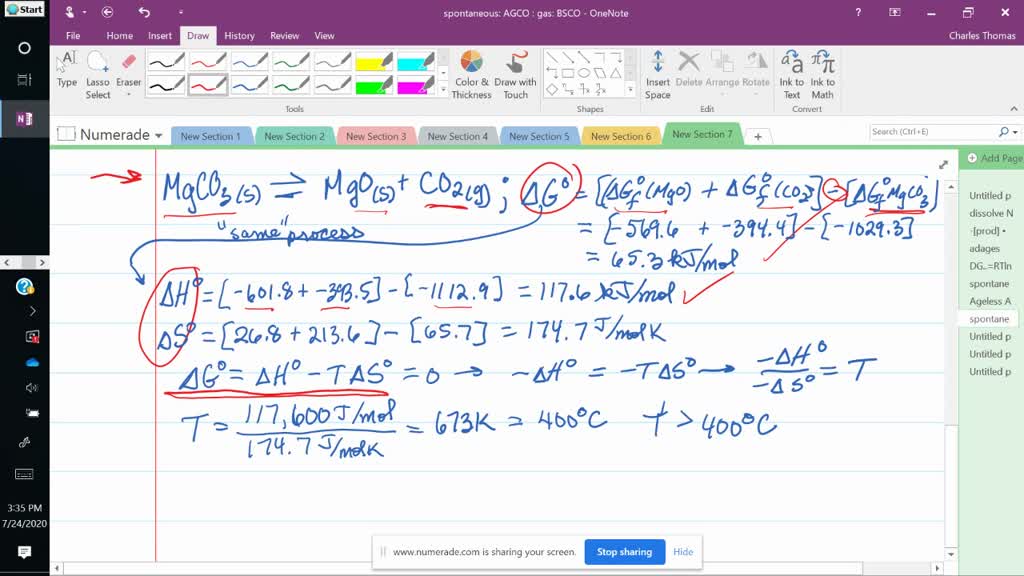 Start
spontaneous: AGCO : gas: BSCO - OneNote
?
File Home Insert Draw History Review View
Charles Thomas
Type
Lasso Select
Eraser
Color & Thickness
Draw with Touch
Insert Space
Delete
Arrange
Rotate
Ink to Text
Ink to Math
Tools
Shapes
Edit
Convert
Numerade
New Section 1
New Section 2
New Section 3
New Section 4
New Section 5
New Section 6
New Section 7
+
Search (Ctrl+E)
Add Page
Untitled p
dissolve N
·[prod] •
adages
DG..=RTln
spontane
Ageless A
spontane
Untitled p
Untitled p
Untitled p
MgCO₃(s) ⇌ MgO(s) + CO₂(g) ; ΔG° = [ΔGf°(MgO) + ΔGf°(CO₂)] - [ΔGf°MgCO₃]
"same" process
= [-569.6 + -394.4] - [-1029.3]
= 65.3 kJ/mol
ΔH° = [-601.8 + -393.5] - [-1112.9] = 117.6 kJ/mol
ΔS° = [26.8 + 213.6] - [65.7] = 174.7 J/molK
ΔG° = ΔH° - TΔS° = 0 → -ΔH° = -TΔS° → -ΔH°/-ΔS° = T
T = 117,600 J/mol / 174.7 J/molK = 673K = 400°C T > 400°C
3:35 PM
7/24/2020
www.numerade.com is sharing your screen.
Stop sharing
Hide